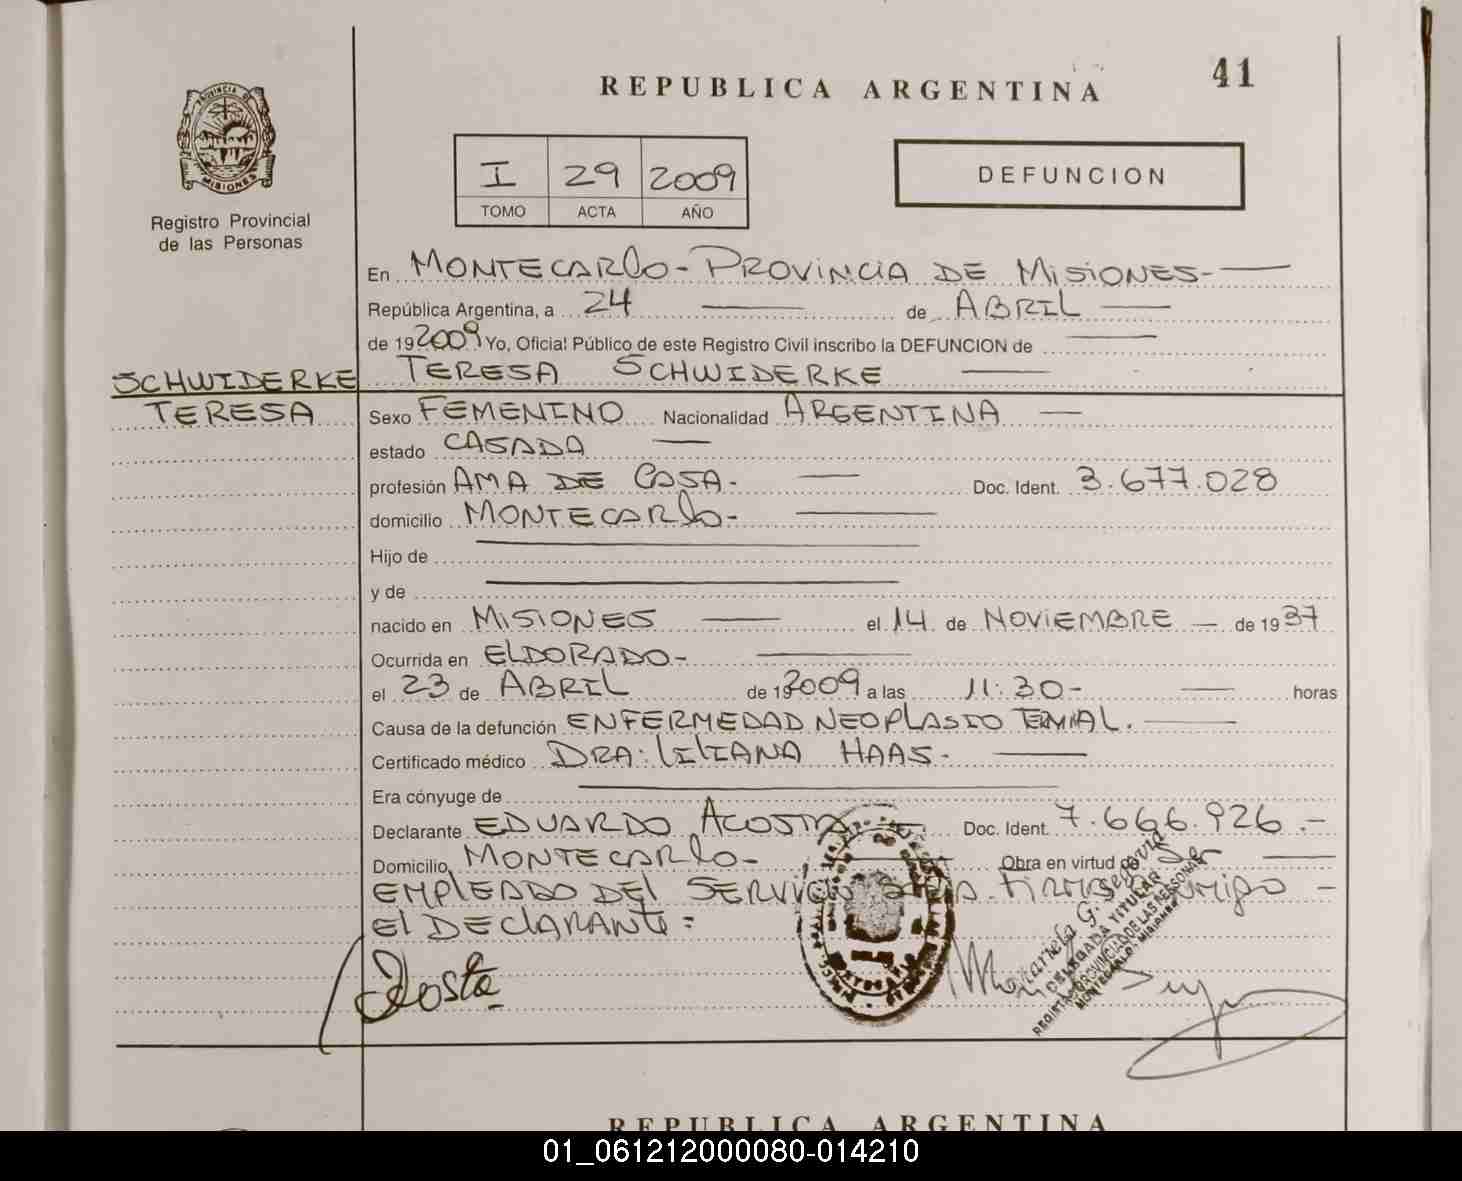 REPUBLICA ARGENTINA
41
PROVINCIA DE
MISIONES
Registro Provincial
de las Personas
I 29 2009
TOMO ACTA AÑO
DEFUNCION
En MONTECARLO - PROVINCIA DE MISIONES -
República Argentina, a 24 de ABRIL
de 19 2009 Yo, Oficial Público de este Registro Civil inscribo la DEFUNCION de
SCHWIDERKE TERESA SCHWIDERKE
TERESA Sexo FEMENINO Nacionalidad ARGENTINA
estado CASADA
profesión AMA DE CASA - Doc. Ident. 3.677.028
domicilio MONTECARLO -
Hijo de
y de
nacido en MISIONES el 14 de NOVIEMBRE de 1937
Ocurrida en ELDORADO -
el 23 de ABRIL de 19 2009 a las 11:30 - horas
Causa de la defunción ENFERMEDAD NEOPLASIO TERMIAL.
Certificado médico DRA: LILIANA HAAS -
Era cónyuge de
Declarante EDUARDO ACOSTA Doc. Ident. 7.666.926.-
Domicilio MONTECARLO - Obra en virtud de Ser
EMPLEADO DEL SERVICIO FIRMA CONMIGO -
El DECLARANTE:
Acosta
Marcela G. Segovia
DELEGADA TITULAR
REGISTRO PROVINCIAL DE LAS PERSONAS
MONTECARLO - MISIONES
REPUBLICA ARGENTINA
01_061212000080-014210